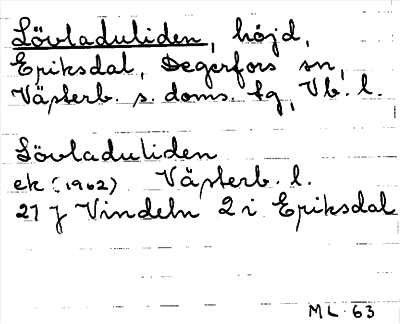 Lövladuliden, höjd,
Eriksdal, Degerfors sn,
Västerb. s. doms. tg, Vb. l.
Lövladuliden
ek (1962) Västerb. l.
21 J Vindeln 2 i Eriksdal
ML 63